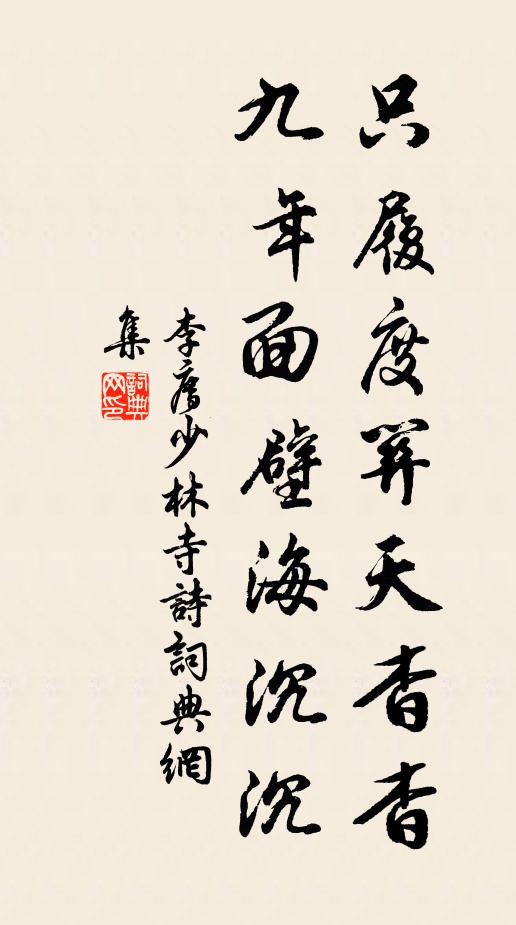 只履度關天杳杳
九年面壁海沉沉
李廌少林寺詩詞典網
集
詞典网印